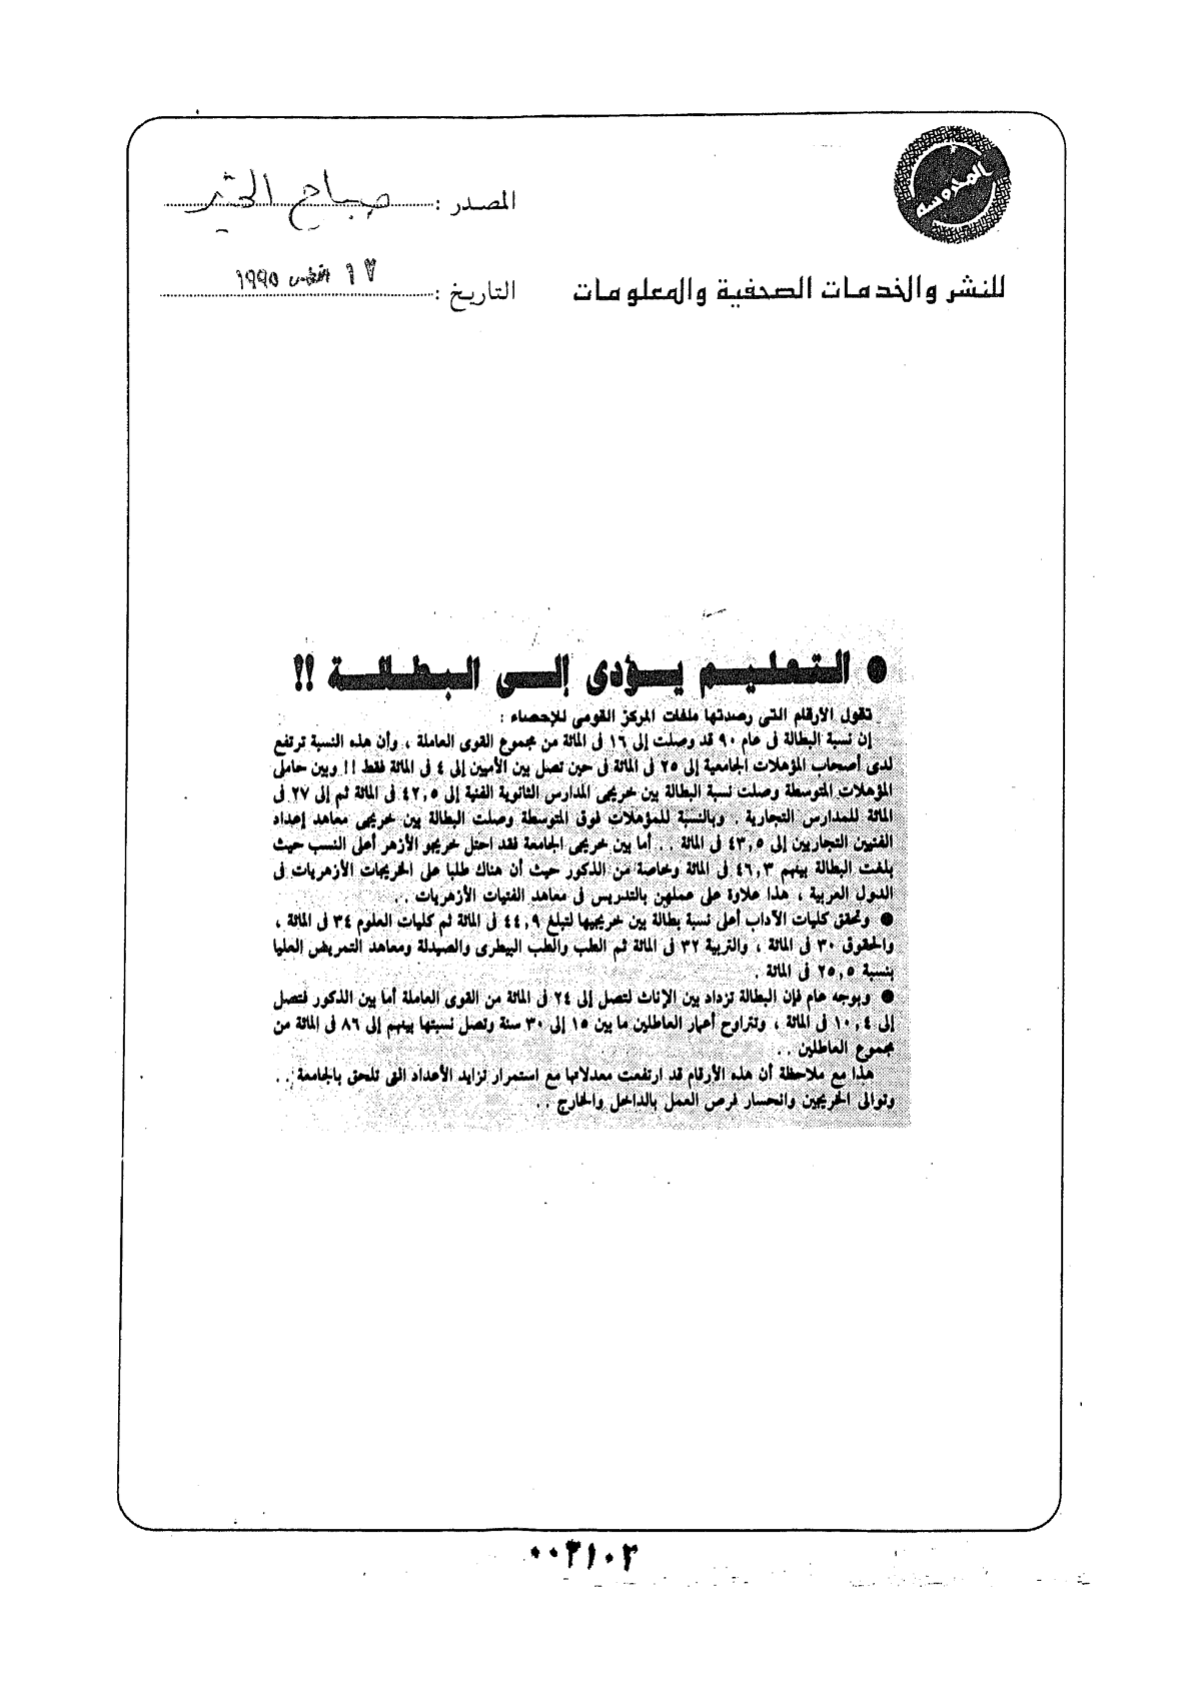 المحروسة
المصدر : صباح الخير
للنشر والخدمات الصحفية والمعلومات
التاريخ : ١٧ أغسطس ١٩٩٥
● التعليم يؤدى إلى البطالة !!
تقول الأرقام التى رصدتها ملفات المركز القومى للإحصاء :
إن نسبة البطالة فى عام ٩٠ قد وصلت إلى ١٦ فى المائة من مجموع القوى العاملة ، وأن هذه النسبة ترتفع
لدى أصحاب المؤهلات الجامعية إلى ٢٥ فى المائة فى حين تصل بين الأميين إلى ٤ فى المائة فقط !! وبين حاملى
المؤهلات المتوسطة وصلت نسبة البطالة بين خريجى المدارس الثانوية الفنية إلى ٤٢,٥ فى المائة ثم إلى ٢٧ فى
المائة للمدارس التجارية . وبالنسبة للمؤهلات فوق المتوسطة وصلت البطالة بين خريجى معاهد إعداد
الفنيين التجاريين إلى ٤٣,٥ فى المائة .. أما بين خريجى الجامعة فقد احتل خريجو الأزهر أعلى النسب حيث
بلغت البطالة بينهم ٤٦,٣ فى المائة وخاصة من الذكور حيث أن هناك طلبا على الخريجات الأزهريات فى
الدول العربية ، هذا علاوة على عملهن بالتدريس فى معاهد الفتيات الأزهريات ..
● وتحقق كليات الآداب أعلى نسبة بطالة بين خريجيها لتبلغ ٤٤,٩ فى المائة ثم كليات العلوم ٣٤ فى المائة ،
والحقوق ٣٠ فى المائة ، والتربية ٣٢ فى المائة ثم الطب والطب البيطرى والصيدلة ومعاهد التمريض العليا
بنسبة ٢٥,٥ فى المائة .
● وبوجه عام فإن البطالة تزداد بين الإناث لتصل إلى ٢٤ فى المائة من القوى العاملة أما بين الذكور فتصل
إلى ١٠,٤ فى المائة ، وتتراوح أعمار العاطلين ما بين ١٥ إلى ٣٠ سنة وتصل نسبتها بينهم إلى ٨٦ فى المائة من
مجموع العاطلين ..
هذا مع ملاحظة أن هذه الأرقام قد ارتفعت معدلاتها مع استمرار تزايد الأعداد التى تلحق بالجامعة ..
وتوالى الخريجين وانحسار فرص العمل بالداخل والخارج ..
٠٠٣١٠٣